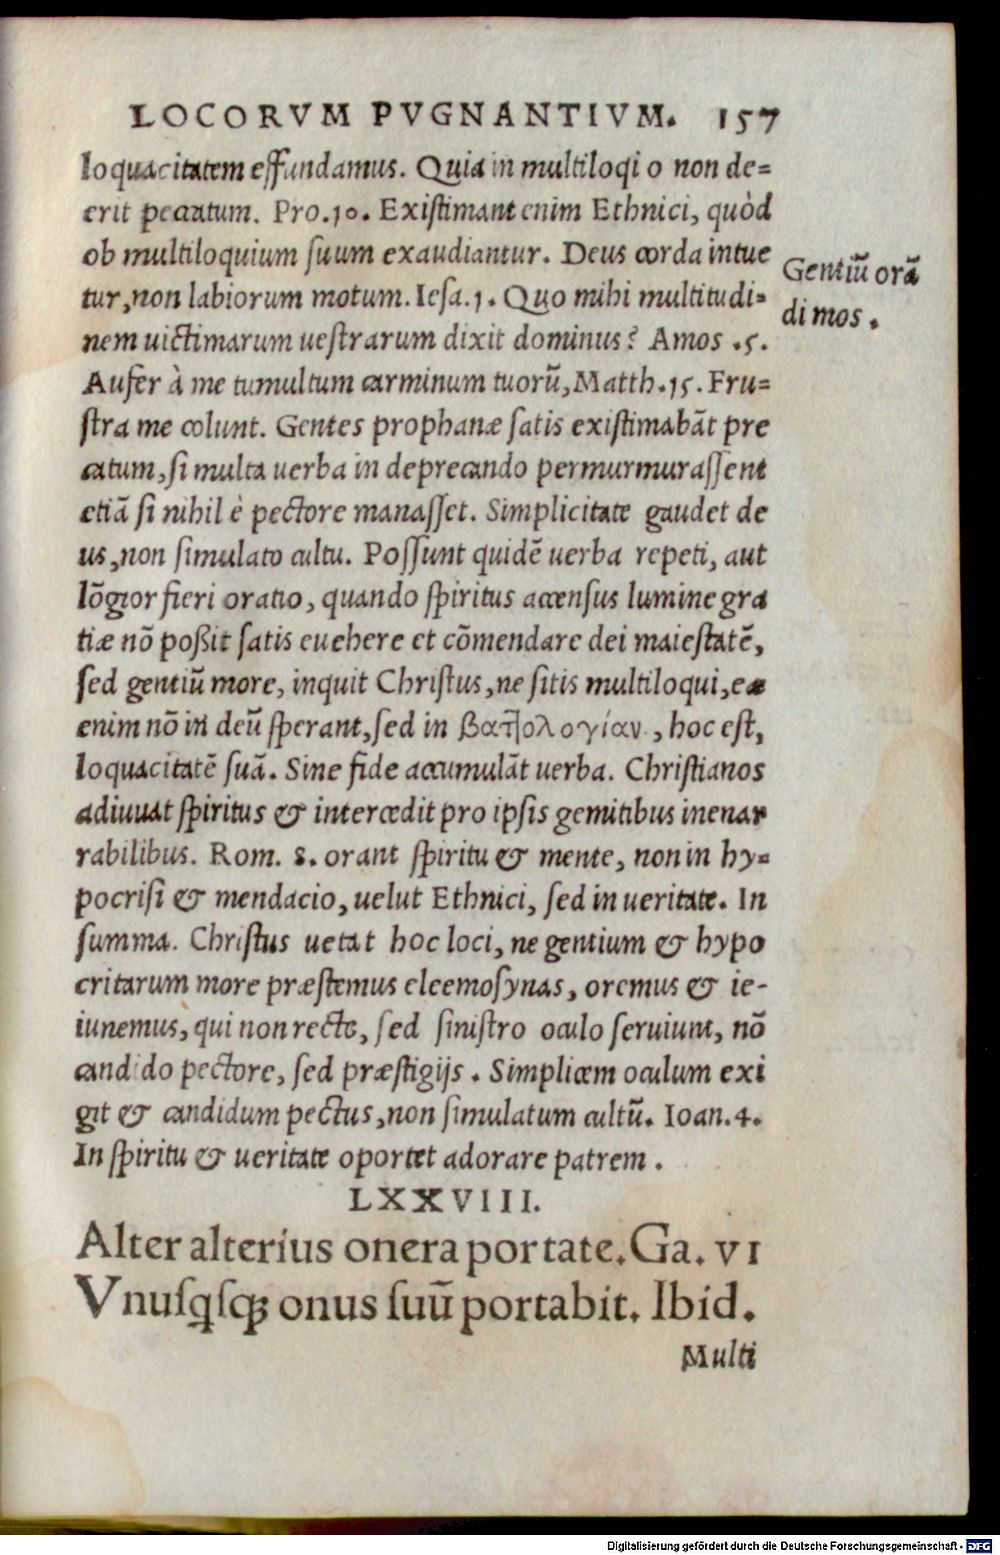 LOCORVM PVGNANTIVM. 157
loquacitatem effundamus. Quia in multiloqio non de=
erit peccatum. Pro.10. Existimant enim Ethnici, quòd
ob multiloquium suum exaudiantur. Deus corda intue
tur, non labiorum motum. Iesa.1. Quo mihi multitudi=
nem uictimarum uestrarum dixit dominus? Amos .5.
Aufer à me tumultum carminum tuorũ, Matth.15. Fru=
stra me colunt. Gentes prophanæ satis existimabãt pre
catum, si multa uerba in deprecando permurmurassent
etiã si nihil è pectore manasset. Simplicitate gaudet de
us, non simulato cultu. Possunt quidẽ uerba repeti, aut
lõgior fieri oratio, quando spiritus accensus lumine gra
tiæ nõ poßit satis euehere et cõmendare dei maiestatẽ,
sed gentiũ more, inquit Christus, ne sitis multiloqui, eæ
enim nõ in deũ sperant, sed in βατίολογίαν, hoc est,
loquacitatẽ suã. Sine fide accumulãt uerba. Christianos
adiuuat spiritus & intercedit pro ipsis gemitibus inenar
rabilibus. Rom. 8. orant spiritu & mente, non in hy=
pocrisi & mendacio, uelut Ethnici, sed in ueritate. In
summa. Christus uetat hoc loci, ne gentium & hypo
critarum more præstemus eleemosynas, oremus & ie-
iunemus, qui non recto, sed sinistro oculo seruiunt, nõ
candido pectore, sed præstigijs. Simplicem oculum exi
git & candidum pectus, non simulatum cultũ. Ioan.4.
In spiritu & ueritate oportet adorare patrem.
LXXVIII.
Alter alterius onera portate. Ga. VI
Vnusq̃sq; onus suũ portabit. Ibid.
Multi
Gentiũ orã
di mos.
Digitalisierung gefördert durch die Deutsche Forschungsgemeinschaft - DFG